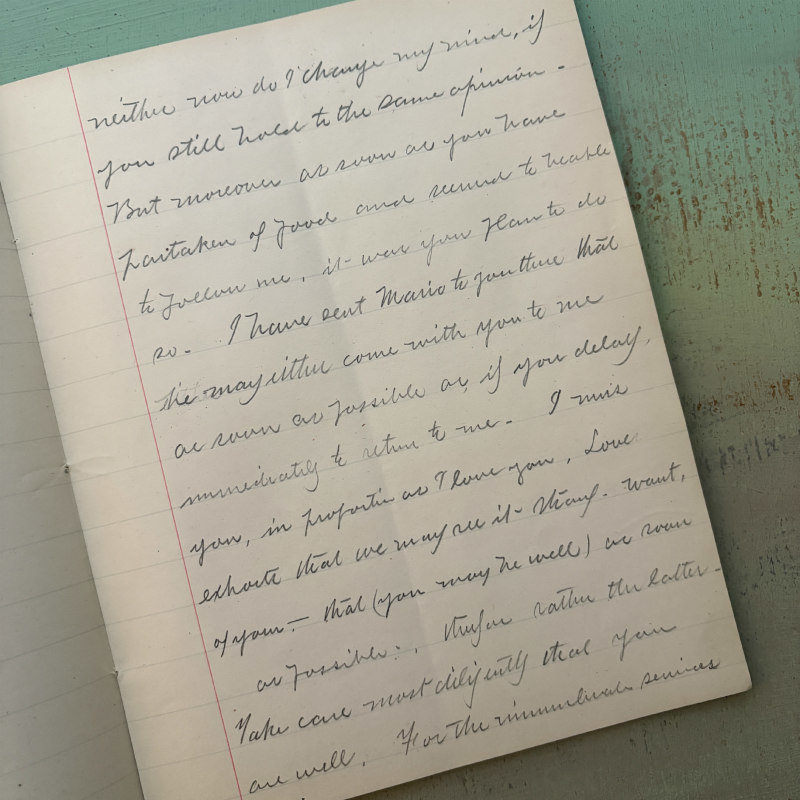 neither now do I change my mind, if
you still hold to the same opinion.
But moreover as soon as you have
partaken of food and seemed to be able
to follow me, it was your plan to do
so. I have sent Mario to you there that
he may either come with you to me
as soon as possible or, if you delay,
immediately to return to me. I miss
you, in proportion as I love you. Love
exhorts that we may see it
of your — that (you may be well) as soon
as possible. , therefore rather the latter.
Take care most diligently that you
are well. For the innumerable services